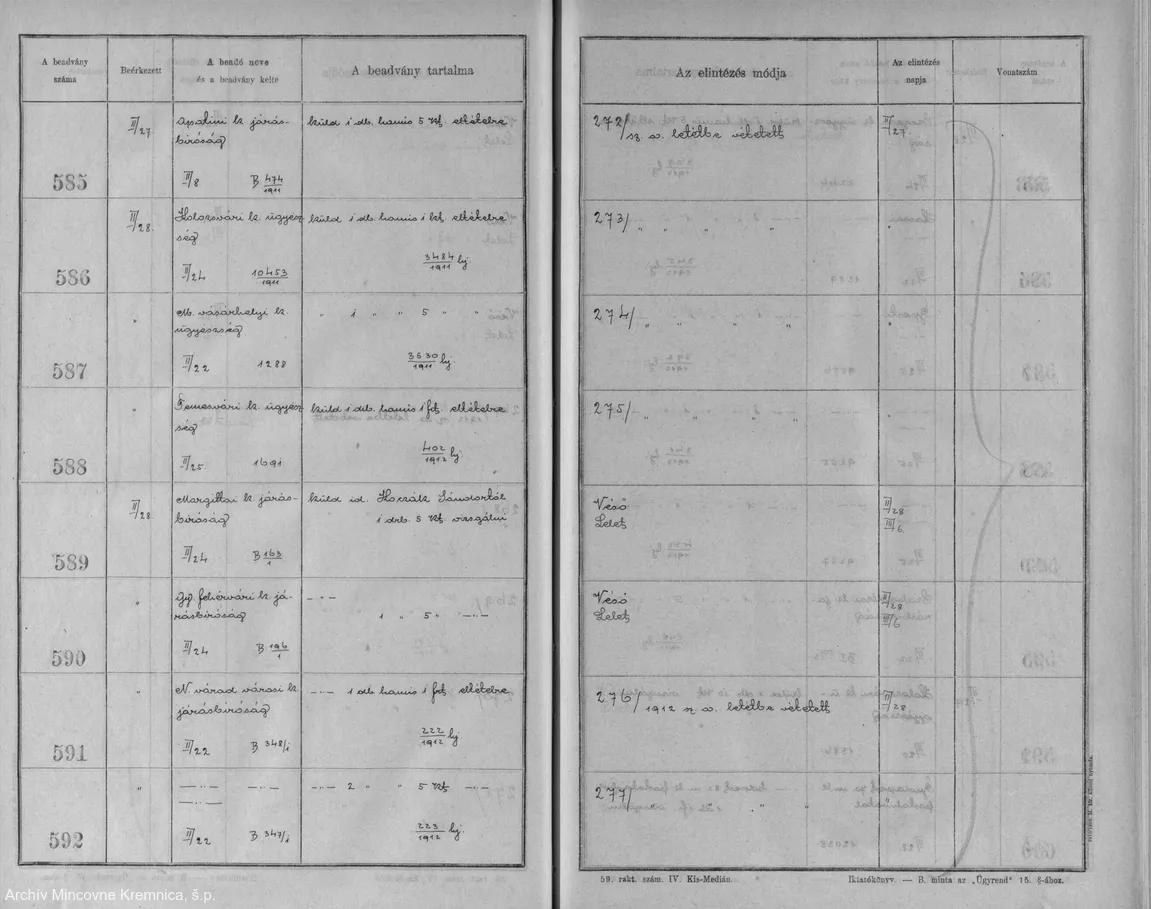 A beadvány száma
Beérkezett
A beadó neve és a beadvány kelte
A beadvány tartalma
Az elintézés módja
Az elintézés napja
Vonatszám
585
II/27.
kir. járás-
biróság
II/8 B 474/1911
küld 1 db. hamis 5 kt. elitéltre
272/
sz. a. letétbe vétetett
II/27.
586
II/28.
Kolozsvári k. ügyész
ség
II/24 10453/1911
küld 1 db. hamis 1 kt.
3484/1911
273/ „ „ „ „
587
„
M. vásárhelyi k.
ügyészség
II/22 1288
„ 1 „ „ 5 „ „
3630/1911
274/ „ „ „ „
588
„
Temesvári k. ügyész
ség
II/25 1691
küld 1 db. hamis 1 frt.
402/1912
275/ „ „ „ „
589
II/28.
Margittai k. járás-
biróság
II/24 B 163/1
küld id. Sándortól
1 drb. 5 kt. vizsgálni
Véső
Lelet
II/28
III/6.
590
„
Gy. fehérvári k. já-
rásbiróság
II/24 B 196/1
— „ —
1 „ 5 „ — „ —
Véső
Lelet
II/28
III/6
591
„
N. várad városi k.
járásbiróság
II/22 B 348/1
— „ — 1 db hamis 1 frt.
222/1912
276/
1912 sz. a. letétbe vétetett
II/28
592
„
— „ — — „ —
— „ —
II/22 B 347/1
— „ — 2 „ „ 5 kt — „ —
223/1912
277/ „ „ „
59. rakt. szám. IV. Kis-Medián.
Iktatókönyv. — B. minta az „Ügyrend” 15. §-ához.
Archív Mincovne Kremnica, š.p.